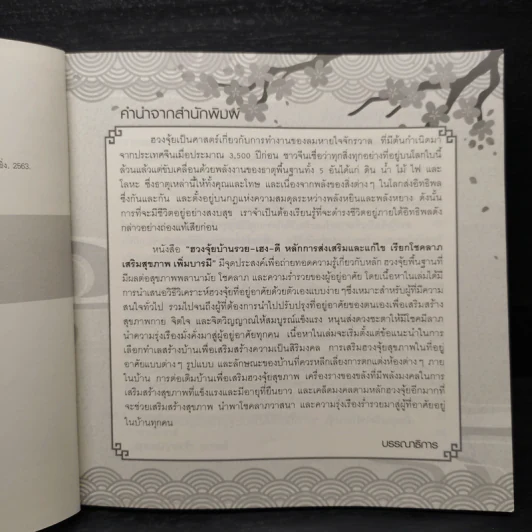 ซิ่ง, 2563.
คำนำจากสำนักพิมพ์
ฮวงจุ้ยเป็นศาสตร์เกี่ยวกับการทำงานของลมหายใจจักรวาล ที่มีต้นกำเนิดมา
จากประเทศจีนเมื่อประมาณ 3,500 ปีก่อน ชาวจีนเชื่อว่าทุกสิ่งทุกอย่างที่อยู่บนโลกใบนี้
ล้วนแล้วแต่ขับเคลื่อนด้วยพลังงานของธาตุพื้นฐานทั้ง 5 อันได้แก่ ดิน น้ำ ไม้ ไฟ และ
โลหะ ซึ่งธาตุเหล่านี้ให้ทั้งคุณและโทษ และเนื่องจากพลังของสิ่งต่างๆ ในโลกส่งอิทธิพล
ซึ่งกันและกัน และตั้งอยู่บนกฎแห่งความสมดุลระหว่างพลังหยินและพลังหยาง ดังนั้น
การที่จะมีชีวิตอยู่อย่างสงบสุข เราจำเป็นต้องเรียนรู้ที่จะดำรงชีวิตอยู่ภายใต้อิทธิพลดัง
กล่าวอย่างถ่องแท้เสียก่อน
หนังสือ "ฮวงจุ้ยบ้านรวย-เฮง-ดี หลักการส่งเสริมและแก้ไข เรียกโชคลาภ
เสริมสุขภาพ เพิ่มบารมี" มีจุดประสงค์เพื่อถ่ายทอดความรู้เกี่ยวกับหลัก ฮวงจุ้ยพื้นฐานที่
มีผลต่อสุขภาพพลานามัย โชคลาภ และความร่ำรวยของผู้อยู่อาศัย โดยเนื้อหาในเล่มได้มี
การนำเสนอวิธีวิเคราะห์ฮวงจุ้ยที่อยู่อาศัยด้วยตัวเองแบบง่าย ๆซึ่งเหมาะสำหรับผู้ที่มีความ
สนใจทั่วไป รวมไปจนถึงผู้ที่ต้องการนำไปปรับปรุงที่อยู่อาศัยของตนเองเพื่อเสริมสร้าง
สุขภาพกาย จิตใจ และจิตวิญญาณให้สมบูรณ์แข็งแรง หนุนส่งดวงชะตาให้มีโชคมีลาภ
นำความรุ่งเรืองมั่งคั่งมาสู่ผู้อยู่อาศัยทุกคน เนื้อหาในเล่มจะเริ่มตั้งแต่ข้อแนะนำในการ
เลือกทำเลสร้างบ้านเพื่อเสริมสร้างความเป็นสิริมงคล การเสริมฮวงจุ้ยสุขภาพในที่อยู่
อาศัยแบบต่างๆ รูปแบบ และลักษณะของบ้านที่ควรหลีกเลี่ยงการตกแต่งห้องต่างๆ ภาย
ในบ้าน การต่อเติมบ้านเพื่อเสริมฮวงจุ้ยสุขภาพ เครื่องรางของขลังที่มีพลังมงคลในการ
เสริมสร้างสุขภาพที่แข็งแรงและมีอายุที่ยืนยาว และเคล็ดมงคลตามหลักฮวงจุ้ยอีกมากที่
จะช่วยเสริมสร้างสุขภาพ นำพาโชคลาภวาสนา และความรุ่งเรืองร่ำรวยมาสู่ผู้ที่อาศัยอยู่
ในบ้านทุกคน
บรรณาธิการ